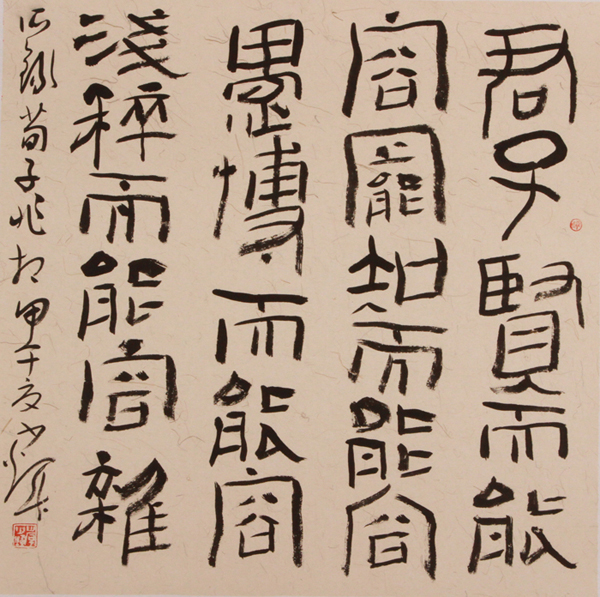 君子賢而能
容罷知而能容
愚博而能容
淺粹而能容雜
錄荀子非相甲午夏